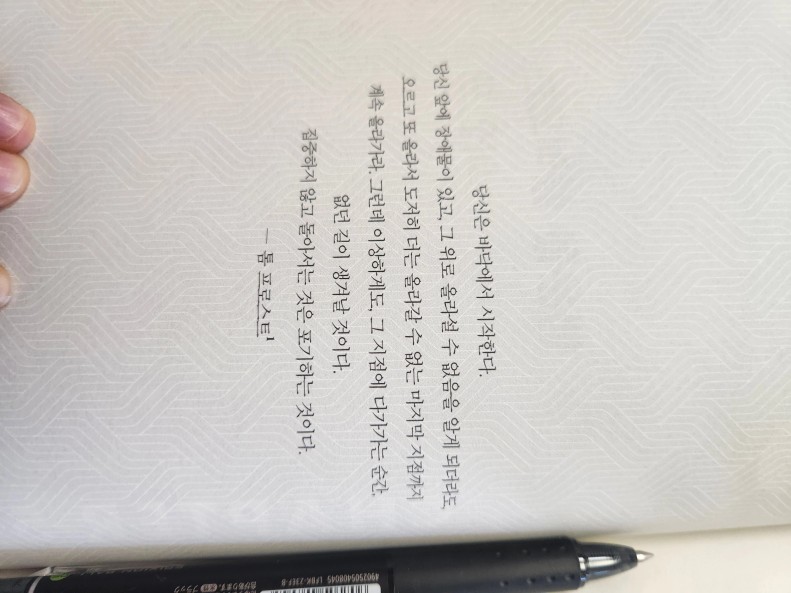 당신은 바닥에서 시작한다.
당신 앞에 장애물이 있고, 그 위로 올라설 수 없음을 알게 되더라도
오르고 또 올라서 도저히 더는 올라갈 수 없는 마지막 지점까지
계속 올라가라. 그런데 이상하게도, 그 지점에 다가가는 순간
없던 길이 생겨날 것이다.
집중하지 않고 돌아서는 것은 포기하는 것이다.
— 톰 프로스트1
4902505408045 LFBK-23EF-B
ブラック